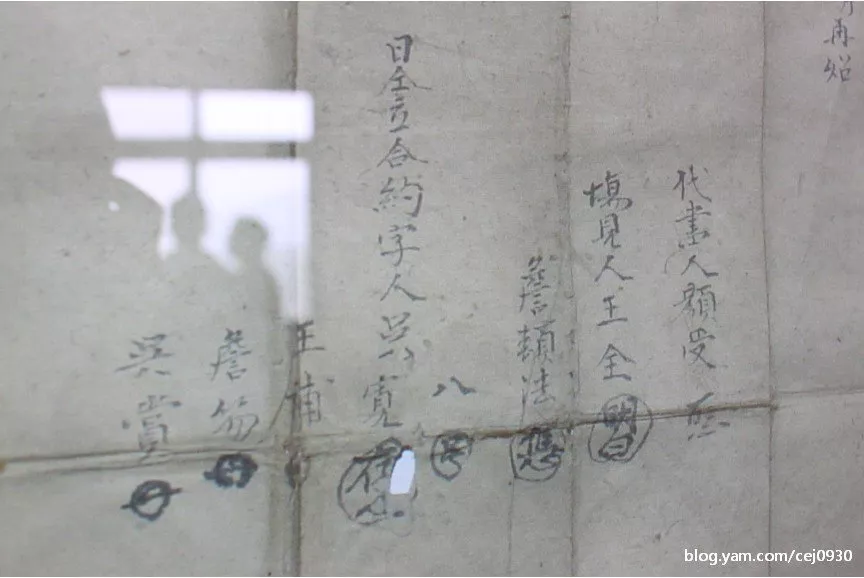 再炤
代書人顏受
塲見人王全
詹賴法
八
日仝立合約字人吳寬
王補
詹笏
吳賞
blog.yam.com/cej0930